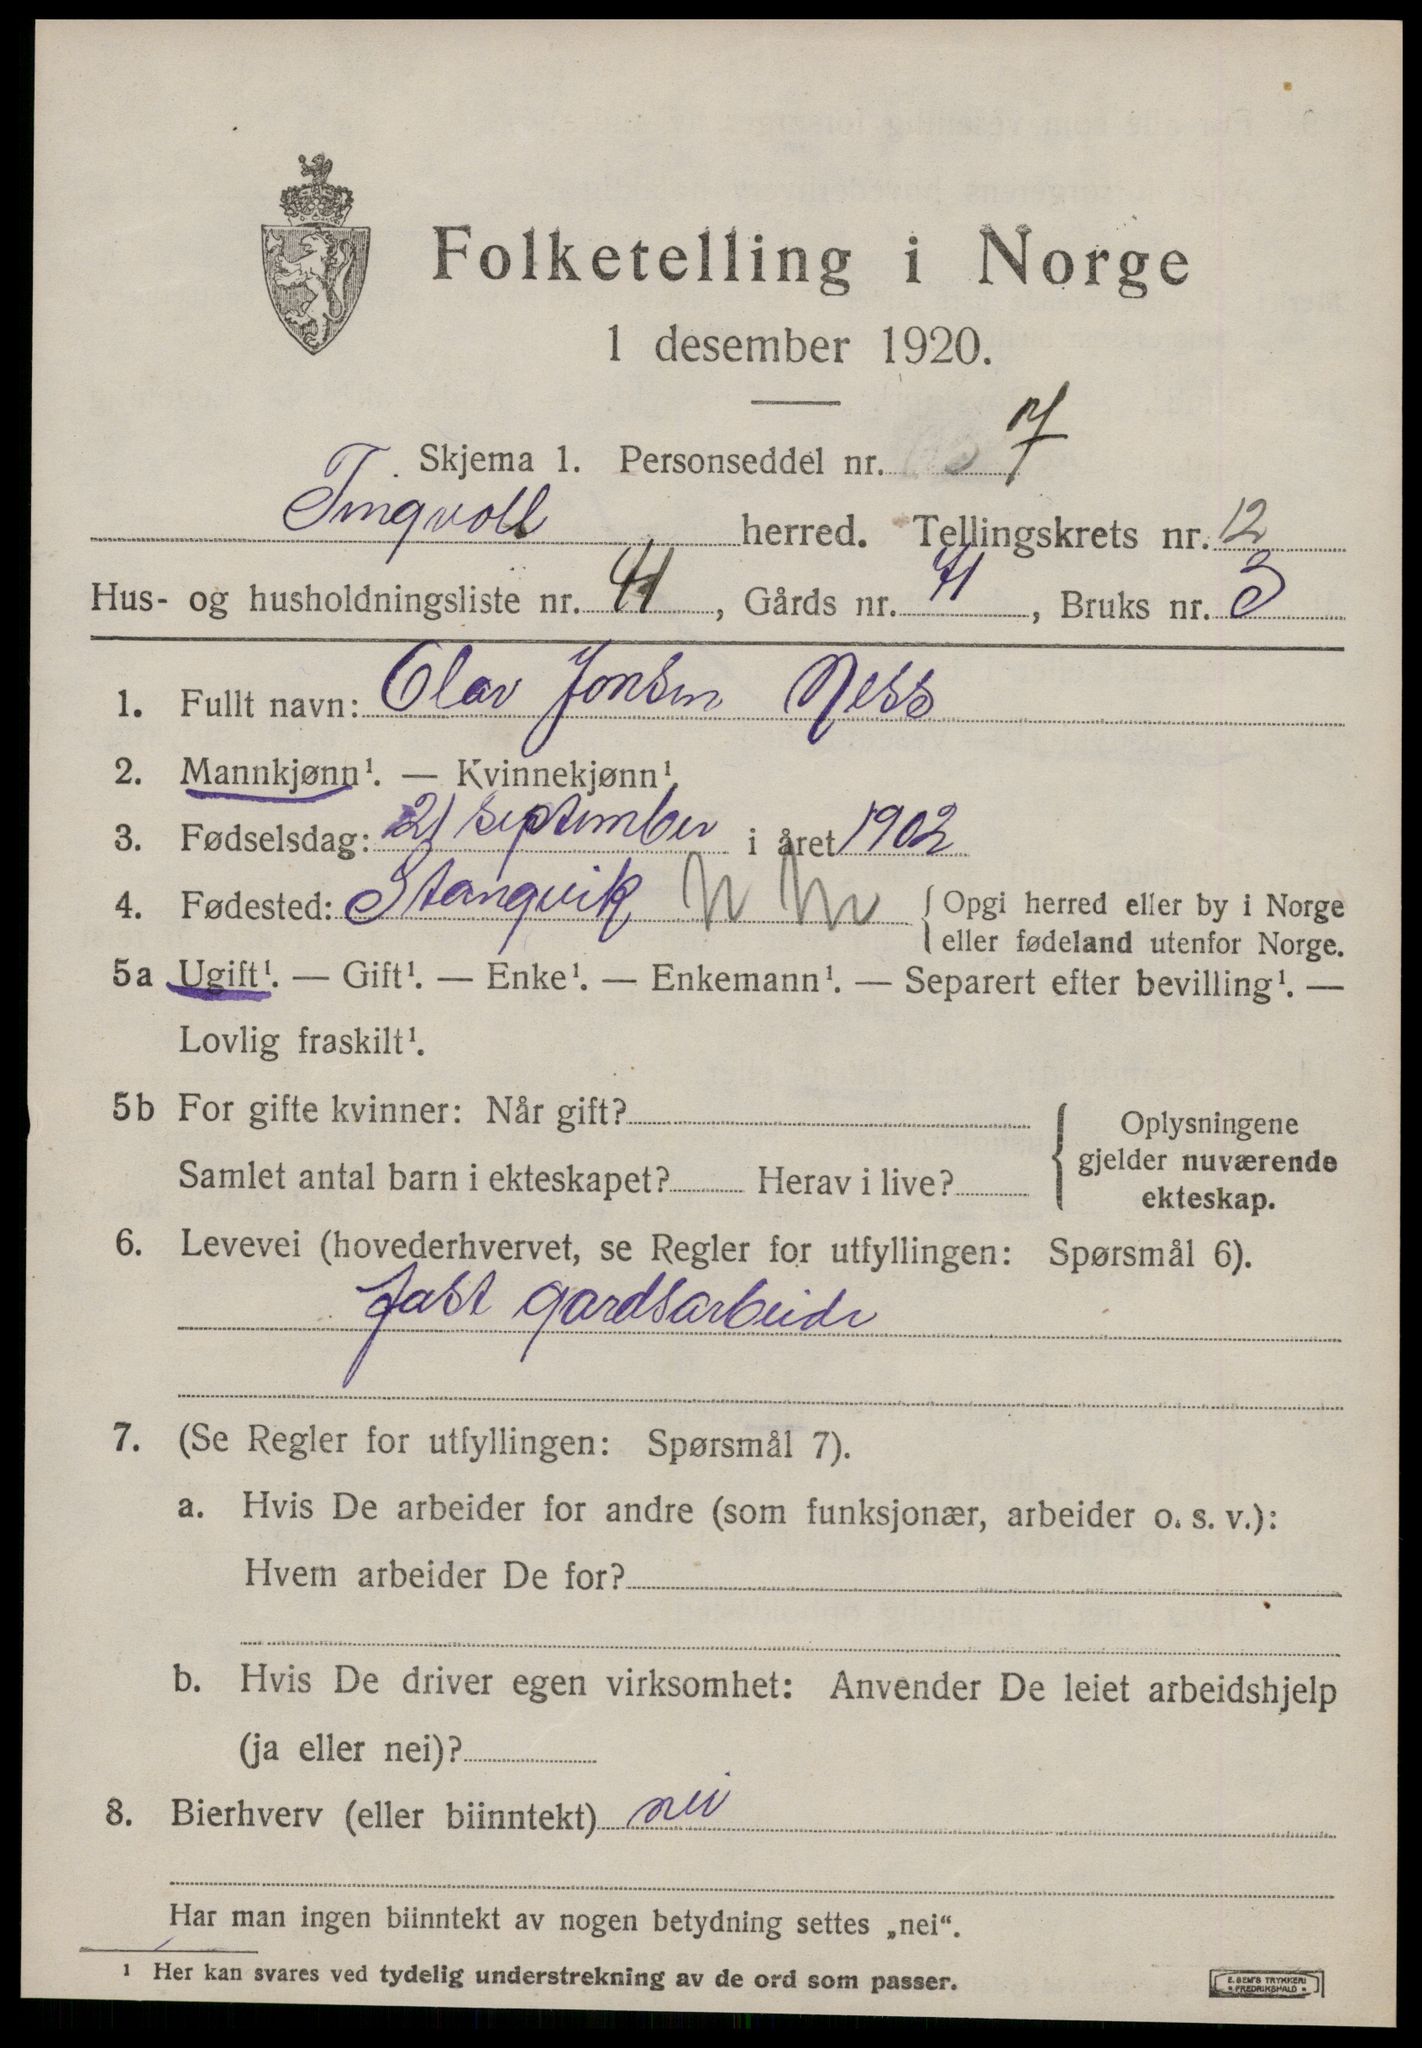 Folketelling i Norge
1 desember 1920.
Skjema 1. Personseddel nr. 7
Tingvoll herred. Tellingskrets nr. 12
Hus- og husholdningsliste nr. 41, Gårds nr. 41, Bruks nr. 3
1. Fullt navn: Olav Jonsen Ness
2. Mannkjønn¹. — Kvinnekjønn¹.
3. Fødselsdag: 21 september i året 1902
4. Fødested: Stangvik { Opgi herred eller by i Norge
eller fødeland utenfor Norge.
5a Ugift¹. — Gift¹. — Enke¹. — Enkemann¹. — Separert efter bevilling¹. —
Lovlig fraskilt¹.
5b For gifte kvinner: Når gift?
Samlet antal barn i ekteskapet? Herav i live?
{ Oplysningene
gjelder nuværende
ekteskap.
6. Levevei (hovederhvervet, se Regler for utfyllingen: Spørsmål 6).
fast gardsarbeide
7. (Se Regler for utfyllingen: Spørsmål 7).
a. Hvis De arbeider for andre (som funksjonær, arbeider o. s. v.):
Hvem arbeider De for?
b. Hvis De driver egen virksomhet: Anvender De leiet arbeidshjelp
(ja eller nei)?
8. Bierhverv (eller biinntekt) nei
Har man ingen biinntekt av nogen betydning settes „nei“.
¹ Her kan svares ved tydelig understrekning av de ord som passer.
E. SEM'S TRYKKERI
• FREDRIKSHALD •